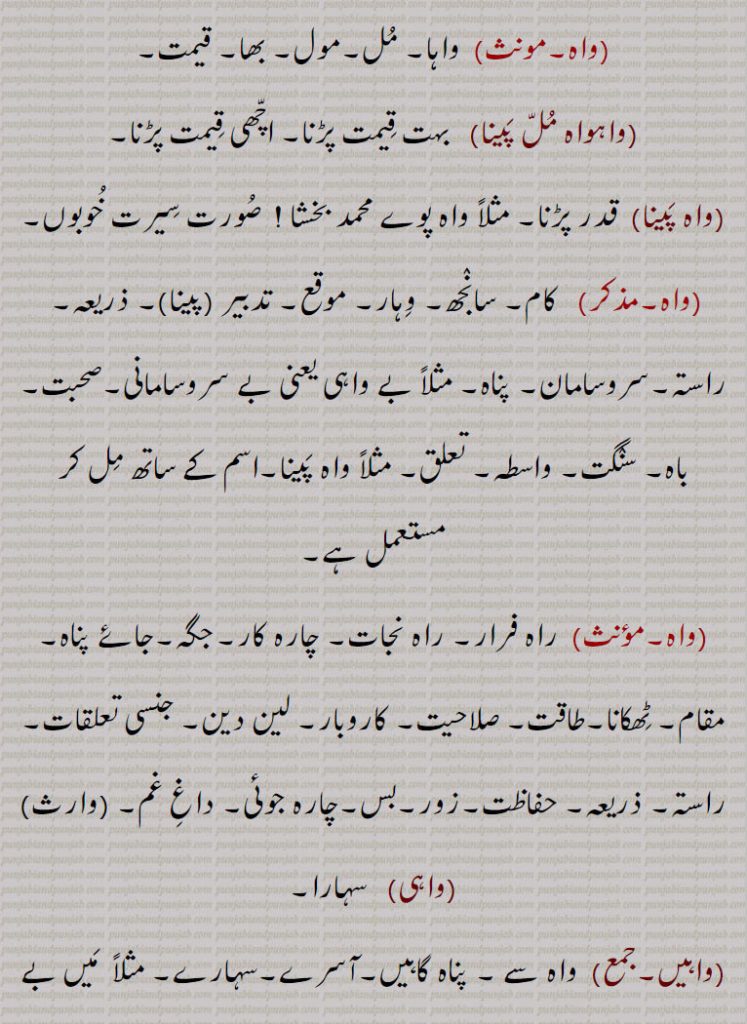 (واہ۔مونث) واہا۔ مُل۔مول۔ بھا۔ قیمت۔
(واہواہ مُلّ پَینا) بہت قِیمت پڑنا۔ اچّھی قِیمت پڑنا۔
(واہ پَینا) قدر پڑنا۔ مثلاً واہ پوے محمد بخشا! صُورت سِیرت خُوبوں۔
(واہ۔مذکر) کام۔ سانْجھ۔ وِہار۔ موقع۔ تدبیر (پینا)۔ ذریعہ۔
راستہ۔سروسامان۔ پناہ۔ مثلاً بے واہی یعنی بے سروسامانی۔صحبت۔
باہ۔ سنْگت۔ واسطہ۔ تعلق۔ مثلاً واہ پَینا۔اسم کے ساتھ مِل کر
مستعمل ہے۔
(واہ۔مؤنث) راہ فرار۔ راہ نجات۔ چارہ کار۔جگہ۔جائے پناہ۔
مقام۔ ٹِھکانا۔طاقت۔ صلاحیت۔ کاروبار۔ لین دین۔ جنسی تعلقات۔
راستہ۔ ذریعہ۔ حفاظت۔زور۔بس۔چارہ جوئی۔ داغِ غم۔ (وارث)
(واہی) سہارا۔
(واہیں۔جمع) واہ سے ۔ پناہ گاہیں۔آسرے۔سہارے۔ مثلاً مَیں بے
punjabikahani.punjabi.com